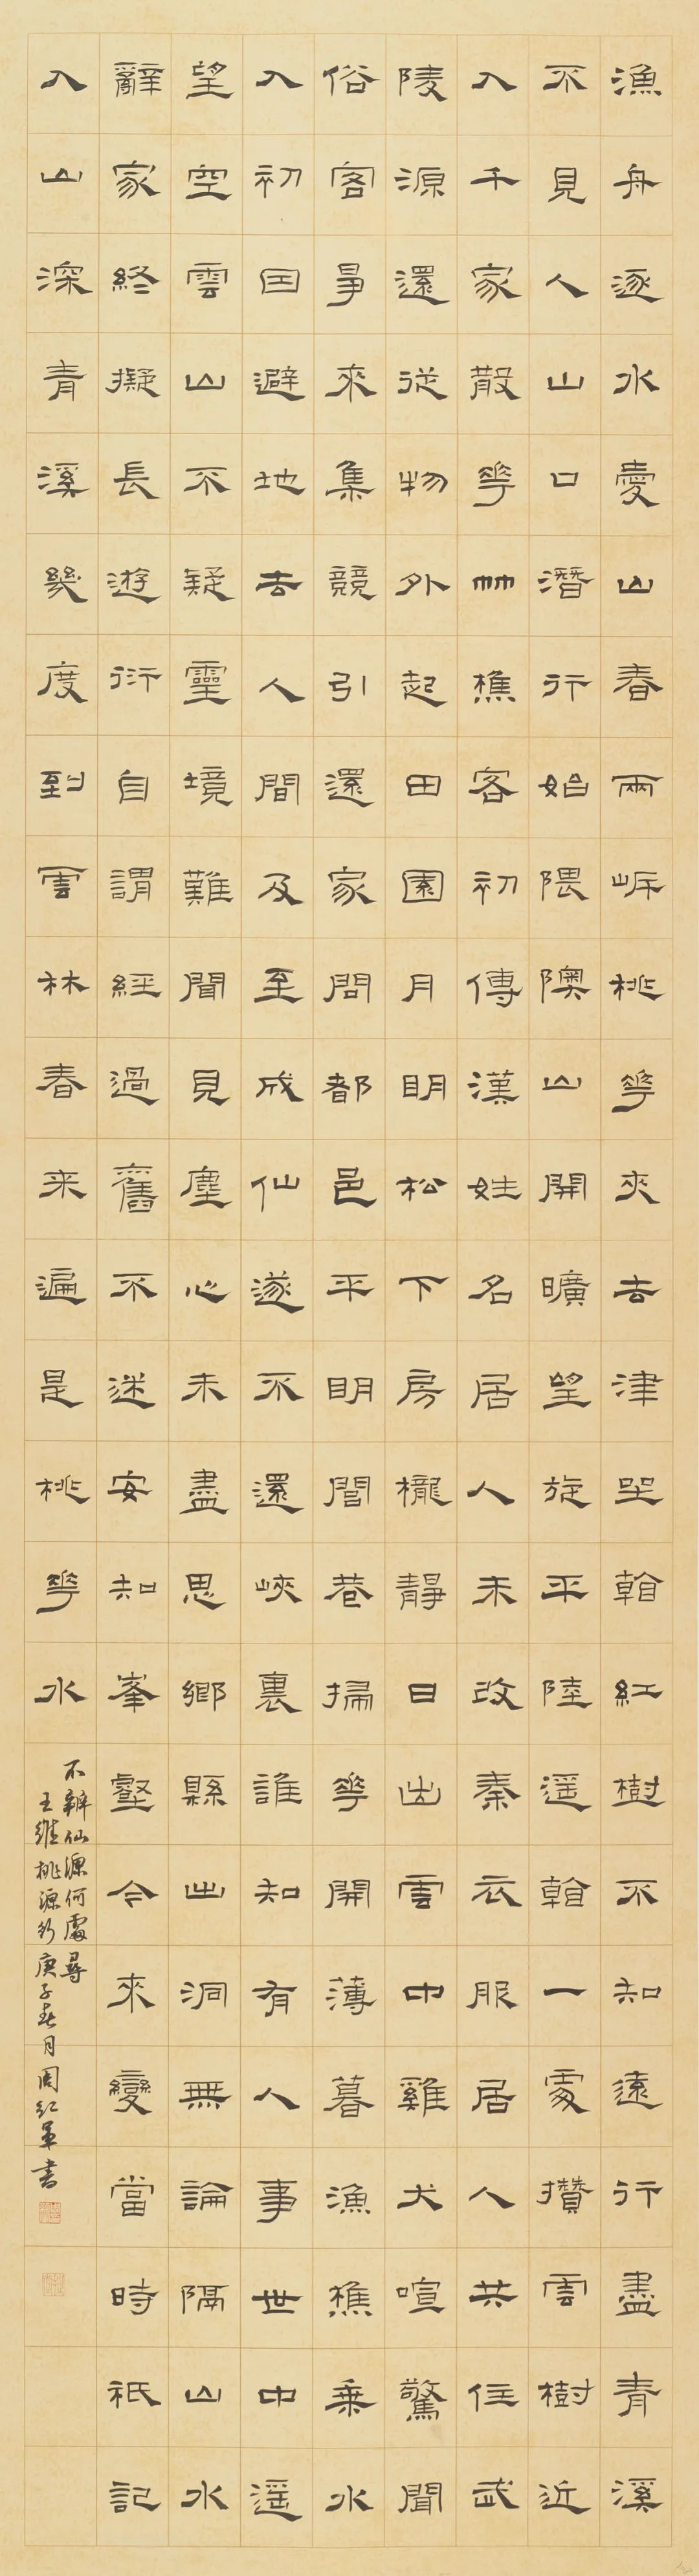 漁舟逐水愛山春兩岸桃華夾去津坐看紅樹不知遠行盡青溪
不見人山口潛行始隈隩山開曠望旋平陸遥看一處攢雲樹近
入千家散華竹樵客初傳漢姓名居人未改秦衣服居人共住武
陵源還從物外起田園月明松下房櫳靜日出雲中雞犬喧驚聞
俗客爭來集競引還家問都邑平明閭巷掃華開薄暮漁樵乘水
入初因避地去人間及至成仙遂不還峽裏誰知有人事世中遥
望空雲山不疑靈境難聞見塵心未盡思鄉縣出洞無論隔山水
辭家終擬長遊衍自謂經過舊不迷安知峯壑今來變當時祇記
入山深青溪幾度到雲林春来遍是桃華水
不辨仙源何處尋
王維桃源行庚子春月周紅軍書